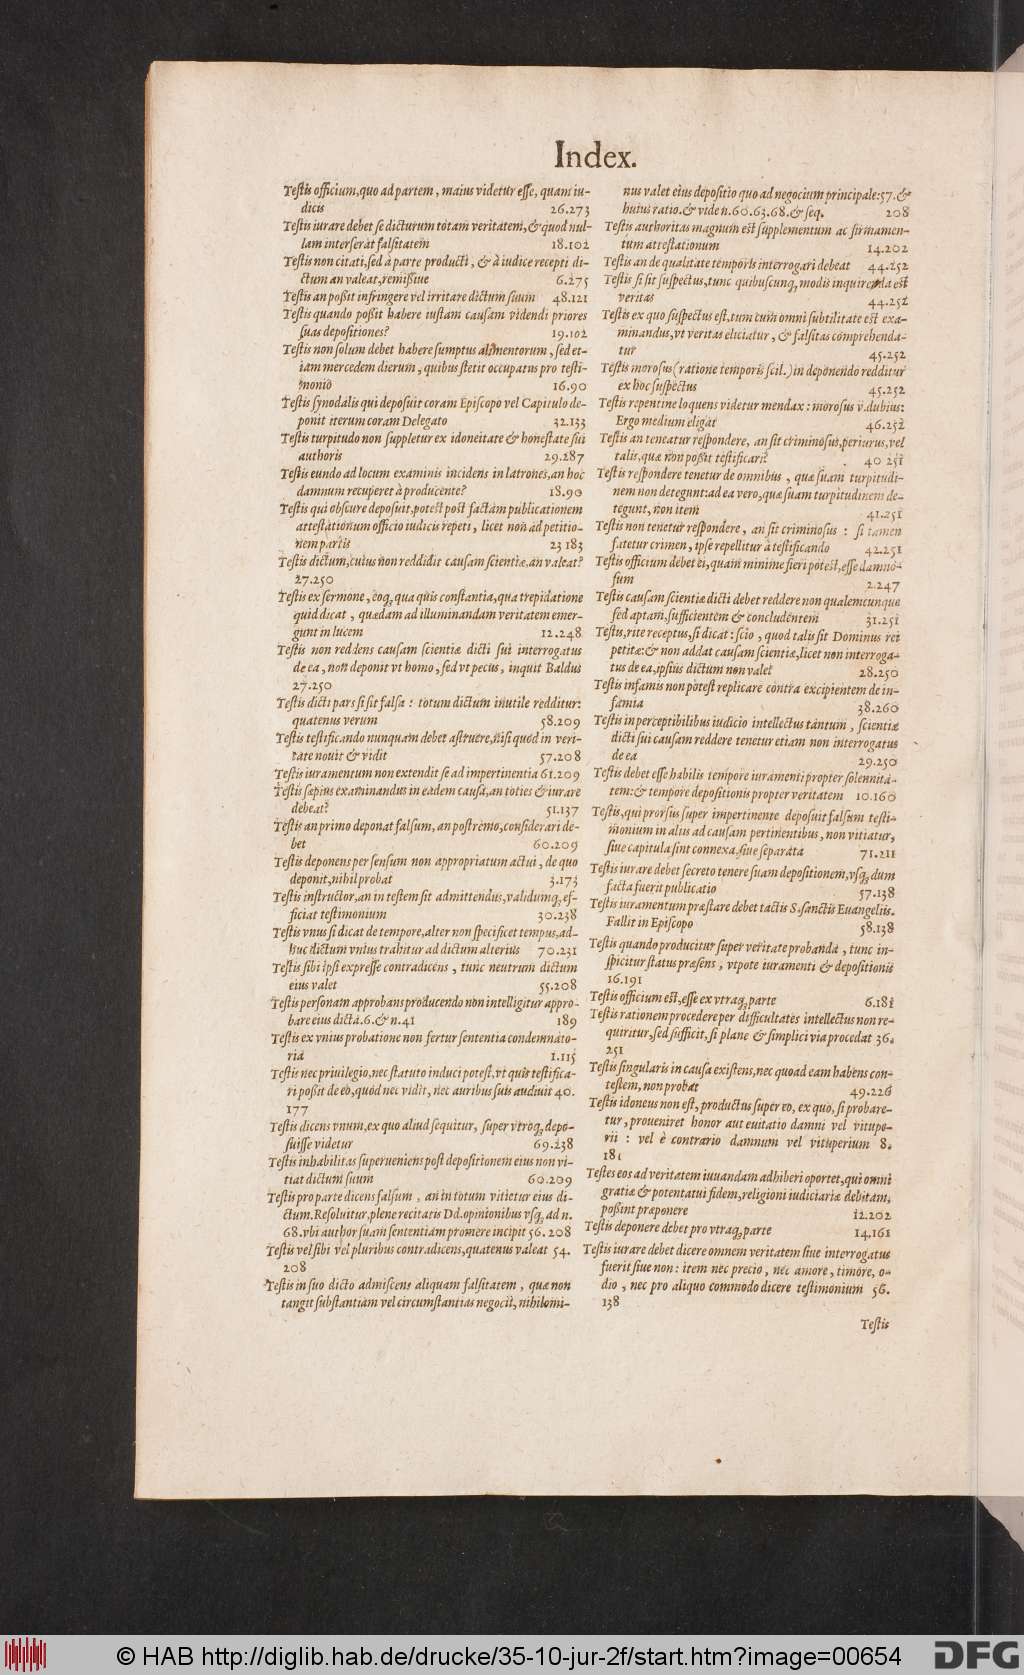 Index.
Testis officium, quo ad partem, maius videtur esse, quam iu-
dicis 26.273
Testis iurare debet se dicturum totam veritatem, & quod nul-
lam interserat falsitatem 18.102
Testis non citati, sed à parte producti, & à iudice recepti di-
ctum an valeat, remissiue 6.275
Testis an possit infringere vel irritare dictum suum 48.121
Testis quando possit habere iustam causam videndi priores
suas depositiones? 19.102
Testis non solum debet habere sumptus alimentorum, sed et-
iam mercedem dierum, quibus stetit occupatus pro testi-
monio 16.90
Testis synodalis qui deposuit coram Episcopo vel Capitulo de-
ponit iterum coram Delegato 32.133
Testis turpitudo non suppletur ex idoneitate & honestate sui
authoris 29.287
Testis eundo ad locum examinis incidens in latrones, an hoc
damnum recuperet à producente? 18.90
Testis qui obscure deposuit, potest post factam publicationem
attestationum officio iudicis repeti, licet non ad petitio-
nem partis 23 183
Testis dictum, cuius non reddidit causam scientiæ, an valeat?
27.250
Testis ex sermone, eoq; qua quis constantia, qua trepidatione
quid dicat, quædam ad illuminandam veritatem emer-
gunt in lucem 12.248
Testis non reddens causam scientiæ dicti sui interrogatus
de ea, non deponit vt homo, sed vt pecus, inquit Baldus
27.250
Testis dicti pars si sit falsa: totum dictum inutile redditur:
quatenus verum 58.209
Testis testificando nunquam debet astruere, nisi quod in veri-
tate nouit & vidit 57.208
Testis iuramentum non extendit se ad impertinentia 61.209
Testis sæpius examinandus in eadem causa, an toties & iurare
debeat? 51.137
Testis an primo deponat falsum, an postremo, considerari de-
bet 60.209
Testis deponens per sensum non appropriatum actui, de quo
deponit, nihil probat 3.173
Testis instructor, an in testem sit admittendus, validumq; ef-
ficiat testimonium 30.238
Testis vnus si dicat de tempore, alter non specificet tempus, ad-
huc dictum vnius trahitur ad dictum alterius 70.231
Testis sibi ipsi expresse contradicens, tunc neutrum dictum
eius valet 55.208
Testis personam approbans producendo non intelligitur appro-
bare eius dicta. 6. & n. 41 189
Testis ex vnius probatione non fertur sententia condemnato-
ria 1.115
Testis nec priuilegio, nec statuto induci potest, vt quis testifica-
ri possit de eo, quod nec vidit, nec auribus suis audiuit 40.
177
Testis dicens vnum, ex quo aliud sequitur, super vtroq; depo-
suisse videtur 69.238
Testis inhabilitas superueniens post depositionem eius non vi-
tiat dictum suum 60.209
Testis pro parte dicens falsum, an in totum vitietur eius di-
ctum. Resoluitur, plene recitatis Dd. opinionibus vsq; ad n.
68. vbi author suam sententiam promere incipit 56.208
Testis vel sibi vel pluribus contradicens, quatenus valeat 54.
208
Testis in suo dicto admiscens aliquam falsitatem, quæ non
tangit substantiam vel circumstantias negocii, nihilomi-
nus valet eius depositio quo ad negocium principale: 57. &
huius ratio. & vide n. 60. 63. 68. & seq. 208
Testis authoritas magnum est supplementum ac firmamen-
tum attestationum 14.202
Testis an de qualitate temporis interrogari debeat 44.252
Testis si sit suspectus, tunc quibuscunq; modis inquirenda est
veritas 44.252
Testis ex quo suspectus est, tum cum omni subtilitate est exa-
minandus, vt veritas eliciatur, & falsitas comprehenda-
tur 45.252
Testis morosus (ratione temporis scil.) in deponendo redditur
ex hoc suspectus 45.252
Testis repentine loquens videtur mendax: morosus v. dubius:
Ergo medium eligat 46.252
Testis an teneatur respondere, an sit criminosus, periurus, vel
talis, quæ non possit testificari? 40 251
Testis respondere tenetur de omnibus, quæ suam turpitudi-
nem non detegunt: ad ea vero, quæ suam turpitudinem de-
tegunt, non item 41.251
Testis non tenetur respondere, an sit criminosus: si tamen
fatetur crimen, ipse repellitur à testificando 42.251
Testis officium debet ei, quam minime fieri potest, esse damno-
sum 2.247
Testis causam scientiæ dicti debet reddere non qualemcunque
sed aptam, sufficientem & concludentem 31.251
Testis, rite receptus, si dicat: scio, quod talis sit Dominus rei
petitæ: & non addat causam scientiæ, licet non interroga-
tus de ea, ipsius dictum non valet 28.250
Testis infamis non potest replicare contra excipientem de in-
famia 38.260
Testis in perceptibilibus iudicio intellectus tantum, scientiæ
dicti sui causam reddere tenetur etiam non interrogatus
de ea 29.250
Testis debet esse habilis tempore iuramenti propter solennita-
tem: & tempore depositionis propter veritatem 10.160
Testis, qui prorsus super impertinente deposuit falsum testi-
monium in aliis ad causam pertinentibus, non vitiatur,
siue capitula sint connexa. siue separata 71.211
Testis iurare debet secreto tenere suam depositionem, vsq; dum
facta fuerit publicatio 57.138
Testis iuramentum præstare debet tactis S. sanctis Euangeliis.
Fallit in Episcopo 58.138
Testis quando producitur super veritate probanda, tunc in-
spicitur status præsens, vtpote iuramenti & depositionis
16.191
Testis officium est, esse ex vtraq; parte 6.181
Testis rationem procedere per difficultates intellectus non re-
quiritur, sed sufficit, si plane & simplici via procedat 36.
251
Testis singularis in causa existens, nec quoad eam habens con-
testem, non probat 49.226
Testis idoneus non est, productus super eo, ex quo, si probare-
tur, proueniret honor aut euitatio damni vel vitupe-
rii: vel è contrario damnum vel vituperium 8.
181
Testes eos ad veritatem iuuandam adhiberi oportet, qui omni
gratiæ & potentatui fidem, religioni iudiciariæ debitam,
possint præponere 12.202
Testis deponere debet pro vtraq; parte 14,161
Testis iurare debet dicere omnem veritatem siue interrogatus
fuerit siue non: item nec precio, nec amore, timore, o-
dio, nec pro aliquo commodo dicere testimonium 56.
138
Testis
© HAB http://diglib.hab.de/drucke/35-10-jur-2f/start.htm?image=00654
DFG